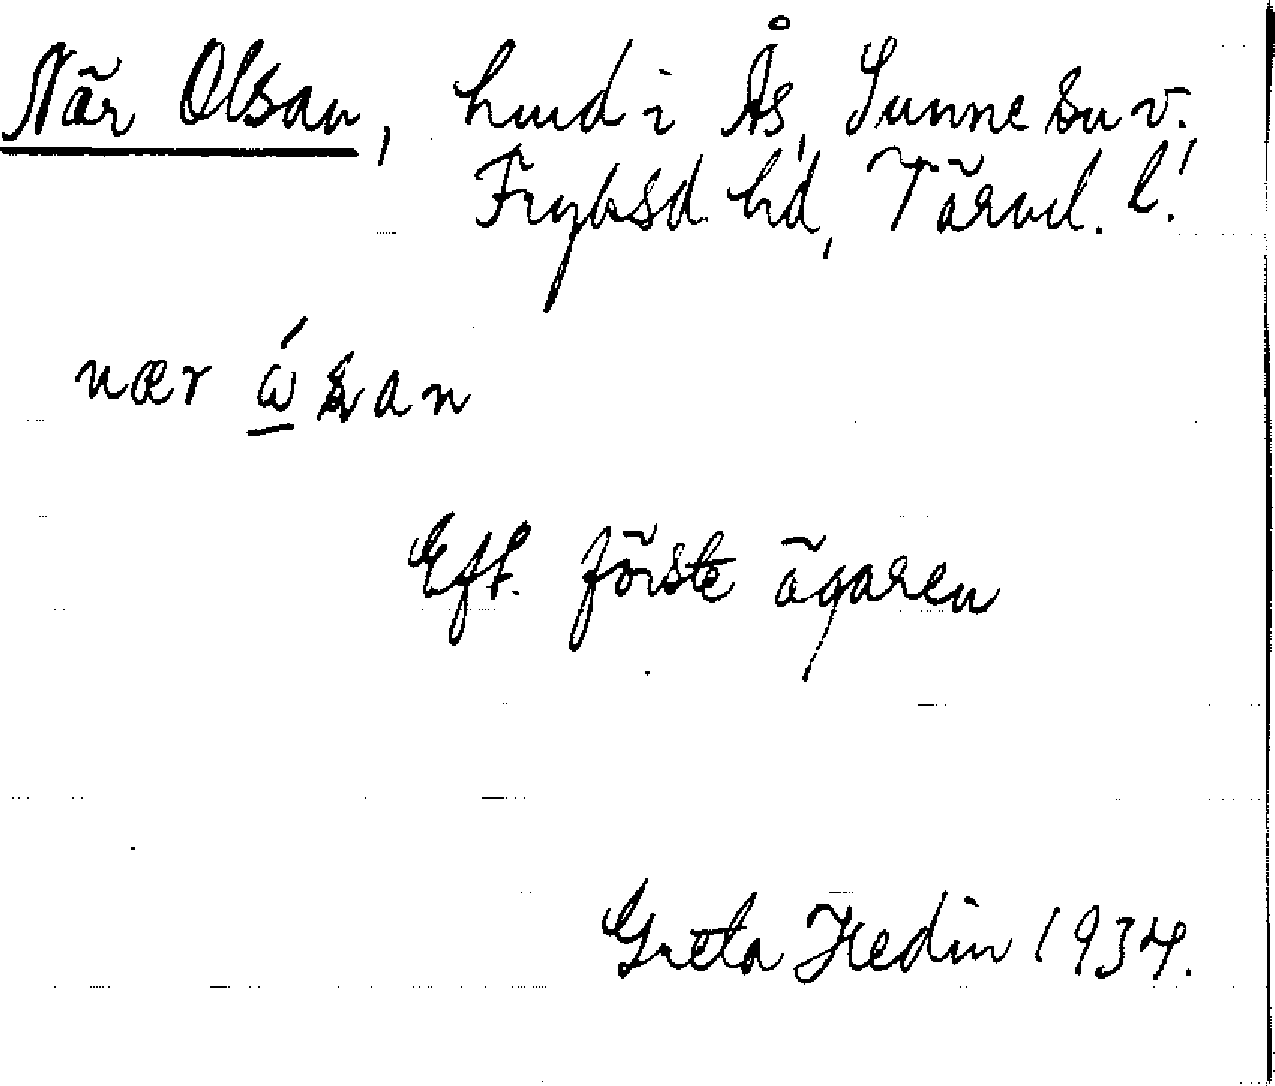 När Olsan, hmd i Ås, Sunne sn v.
Fryksd. hd, Värml. l.!
nær
Eft. förste ägaren
Greta Hedin 1934.